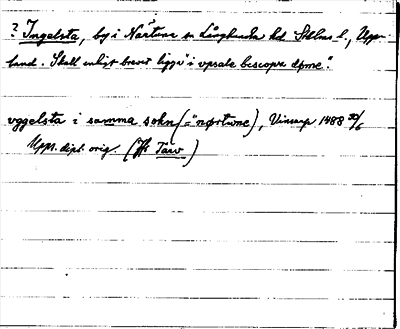 ? Ingelsta, by i Närtuna sn Långhundra hd Sthlms l., Upp-
land. Skall enligt brevet ligga "i vpsala bescops døme".
vggelsta i samma sokn (="nørtwne), Vinsarp 1488 30/6
Upps. dipl. orig. (Jfr Tarv)